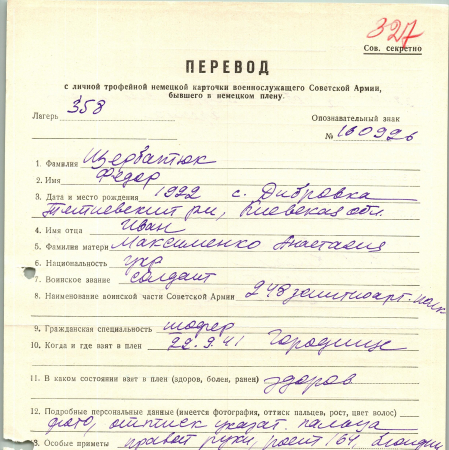 327
Сов. секретно
ПЕРЕВОД
с личной трофейной немецкой карточки военнослужащего Советской Армии,
бывшего в немецком плену.
Лагерь 358
Опознавательный знак
№ 160996
1. Фамилия Щербатюк
2. Имя Фёдор
3. Дата и место рождения 1922 с. Дибровка
Тетиевский р-н, Киевская обл.
4. Имя отца Иван
5. Фамилия матери Максименко Анастасия
6. Национальность укр
7. Воинское звание солдат
8. Наименование воинской части Советской Армии 248 зенитно арт. полк
9. Гражданская специальность шофер
10. Когда и где взят в плен 22.9.41 Городище
11. В каком состоянии взят в плен (здоров, болен, ранен) здоров
12. Подробные персональные данные (имеется фотография, оттиск пальцев, рост, цвет волос)
фото, оттиск указат пальца
13. Особые приметы правой руки, рост 164, блондин